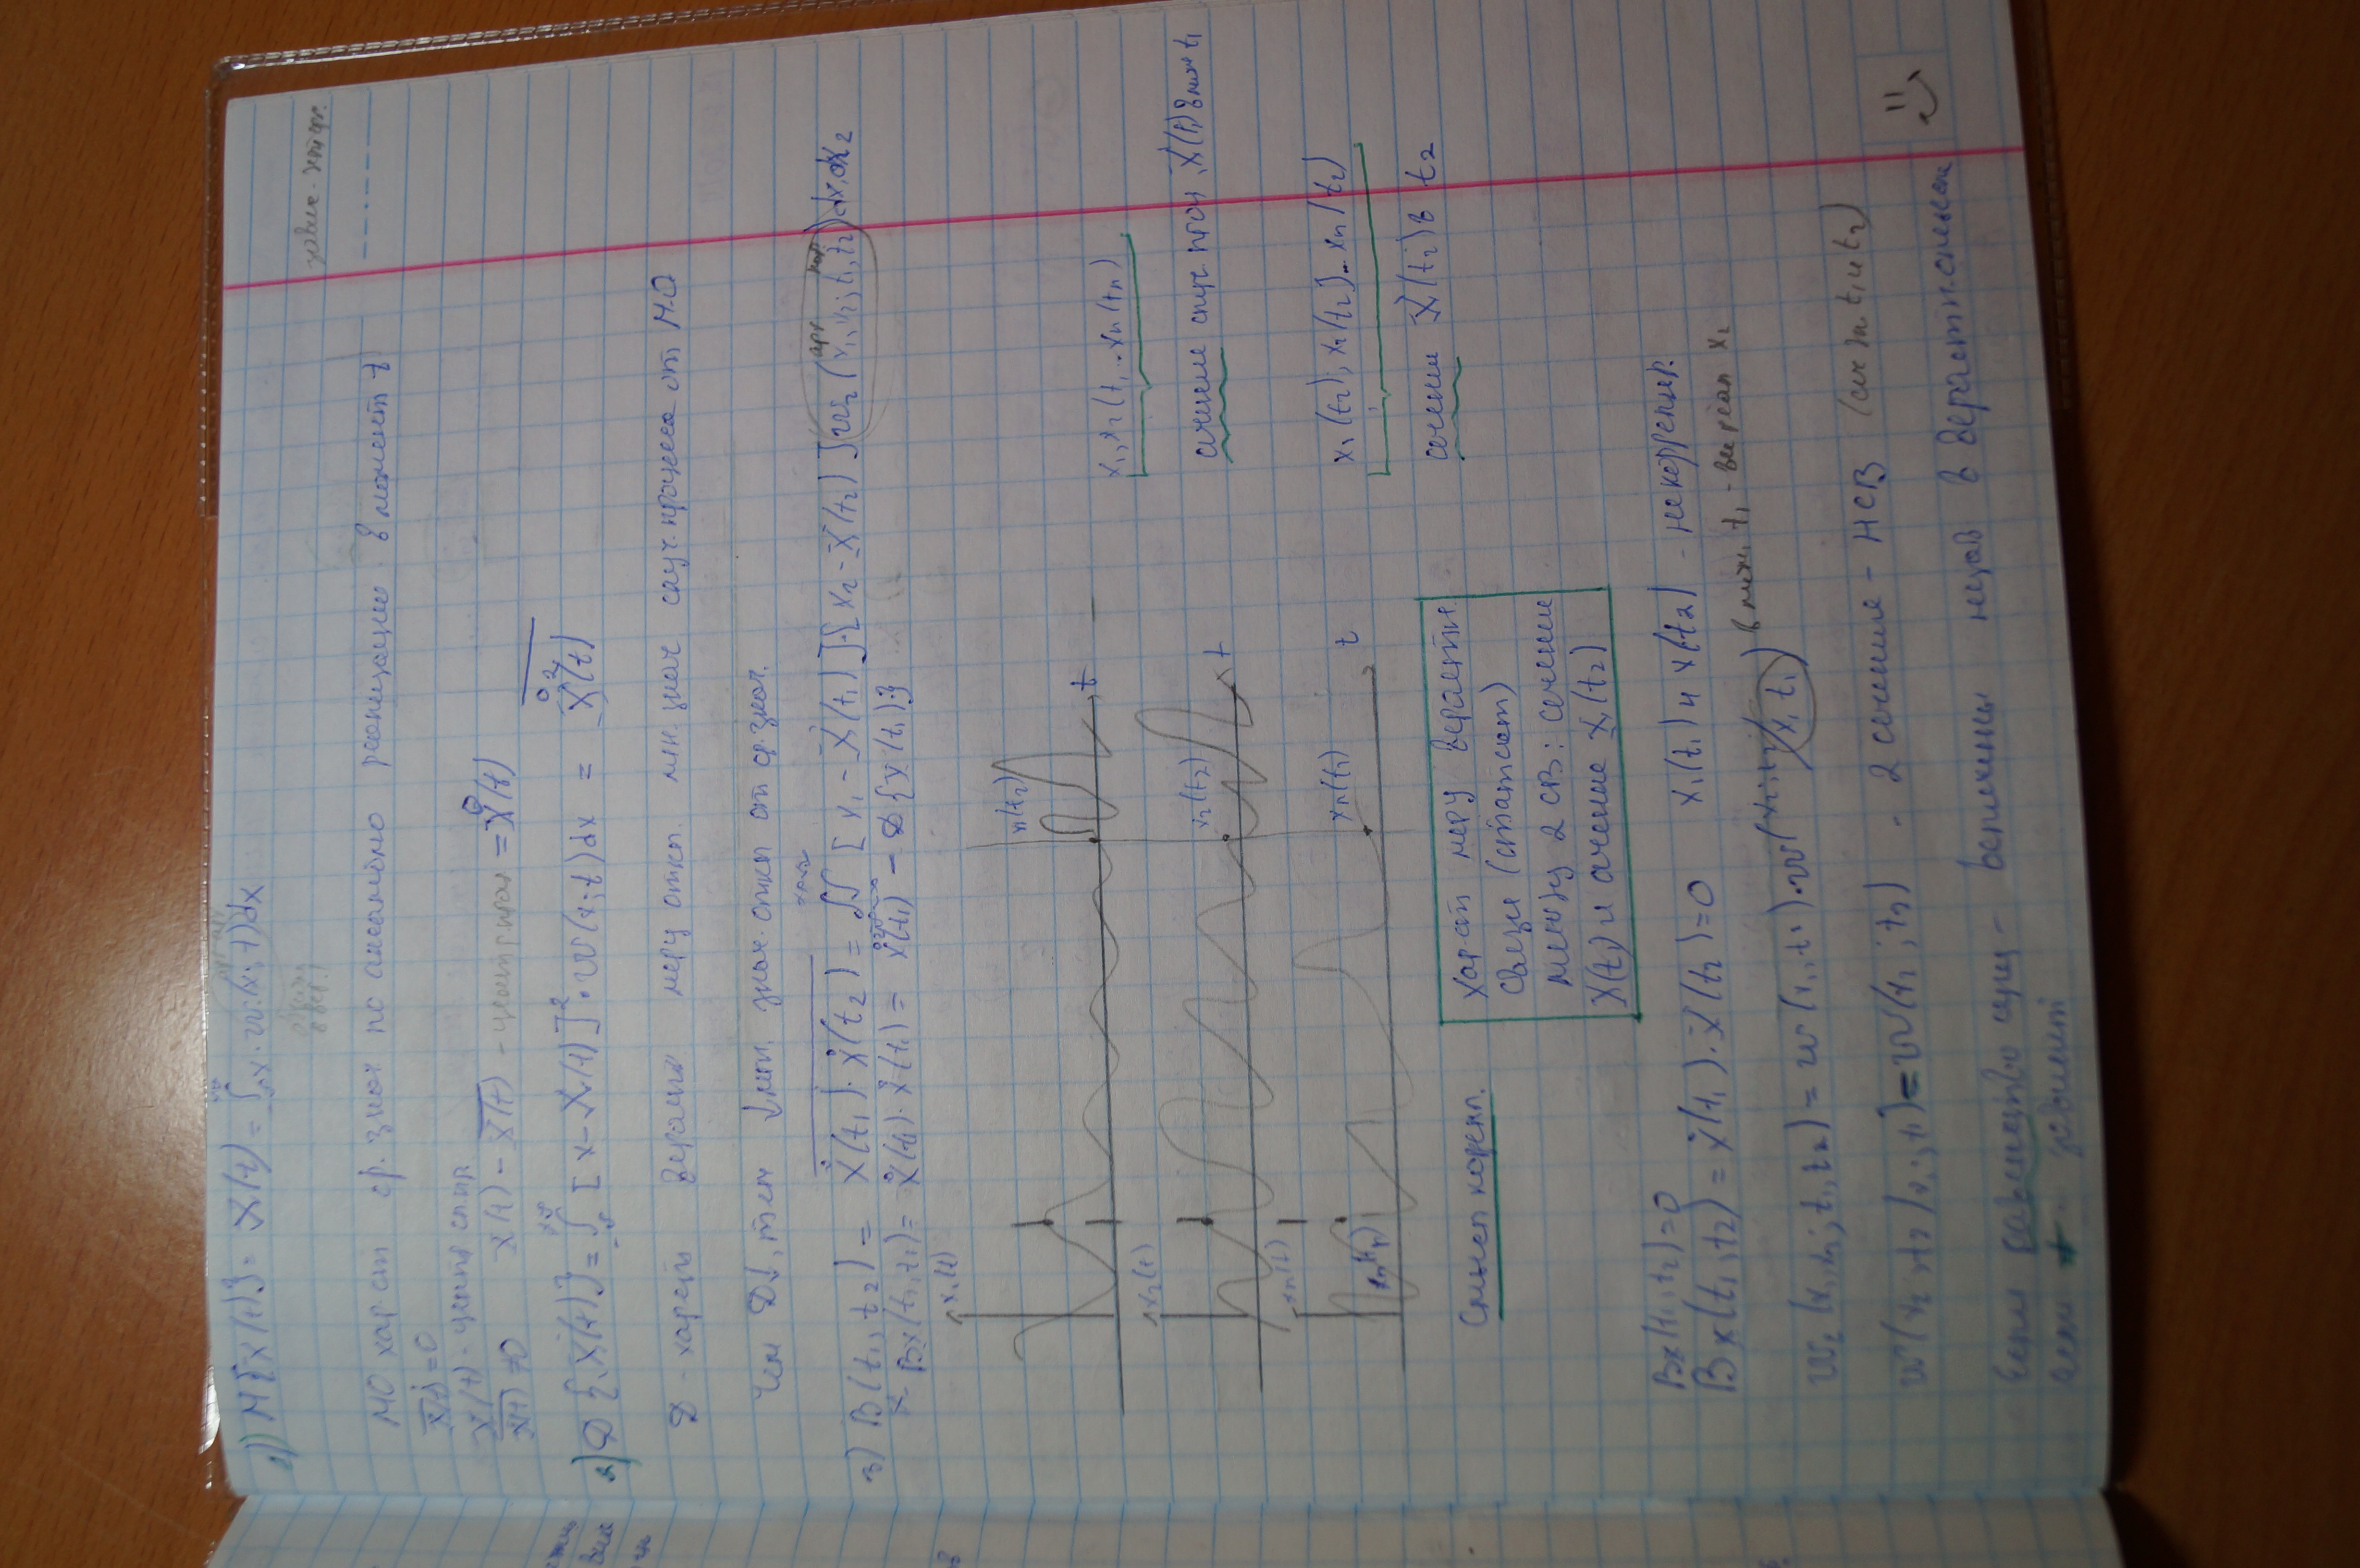 1) M{X(t)} = X(t) = ∫ x · w(x; t)dx
завис-
МО хар-ет ср. знач по ансамблю реализации в момент t
X(t) = 0
X(t) - центр сл.пр
X(t) ≠ 0 X(t) - X(t) - центр. проц = X̊(t)
2) D{X(t)} = ∫ [x - X(t)]² · w(x; t)dx = X̊²(t)
D - харет вероятн меру откл. мн. знач случ. процесса от М.О
Чем D↓, тем ↓ мгн. знач. откл от ср. знач.
3) B(t₁, t₂) = X̊(t₁) · X̊(t₂) = ∫∫ [x₁ - X(t₁)]·[x₂ - X(t₂)] w₂(x₁, x₂; t₁, t₂)dx₁dx₂
арг пар.
Bx(t₁, t₁) = X̊(t₁) · X̊(t₁) = X̊²(t₁) - D{X(t₁)}
x₁(t)
x₁(t₂)
t
x₁, x₂(t₁ .. xn(tn)
x₂(t)
x₂(t₂)
t
сечение случ. проц X(t₁) в мом t₁
xn(t)
xn(t₂)
t
x₁(t₂), x₂(t₂) .. xn(t₂)
сечение X(t₂) в t₂
Смысл коррел.
Хар-ет меру вероятн.
связи (статист)
между 2 СВ: сечение
X(t₁) и сечение X(t₂)
Bx(t₁, t₂) = 0
Bx(t₁, t₂) = X̊(t₁) · X̊(t₂) = 0 X(t₁) и X(t₂) - некоррелир.
w₂(x₁, x₂; t₁, t₂) = w(x₁, t₁) · w(x₂; t₂/x₁ t₁) в мом. t₁ -
w(x₂; t₂/x₁; t₁) = w(x₂; t₂) - 2 сечения - НСВ (сеч в t₁ и t₂)
Если равенство - величины незав в вероятн. смысле
если ≠ - зависит